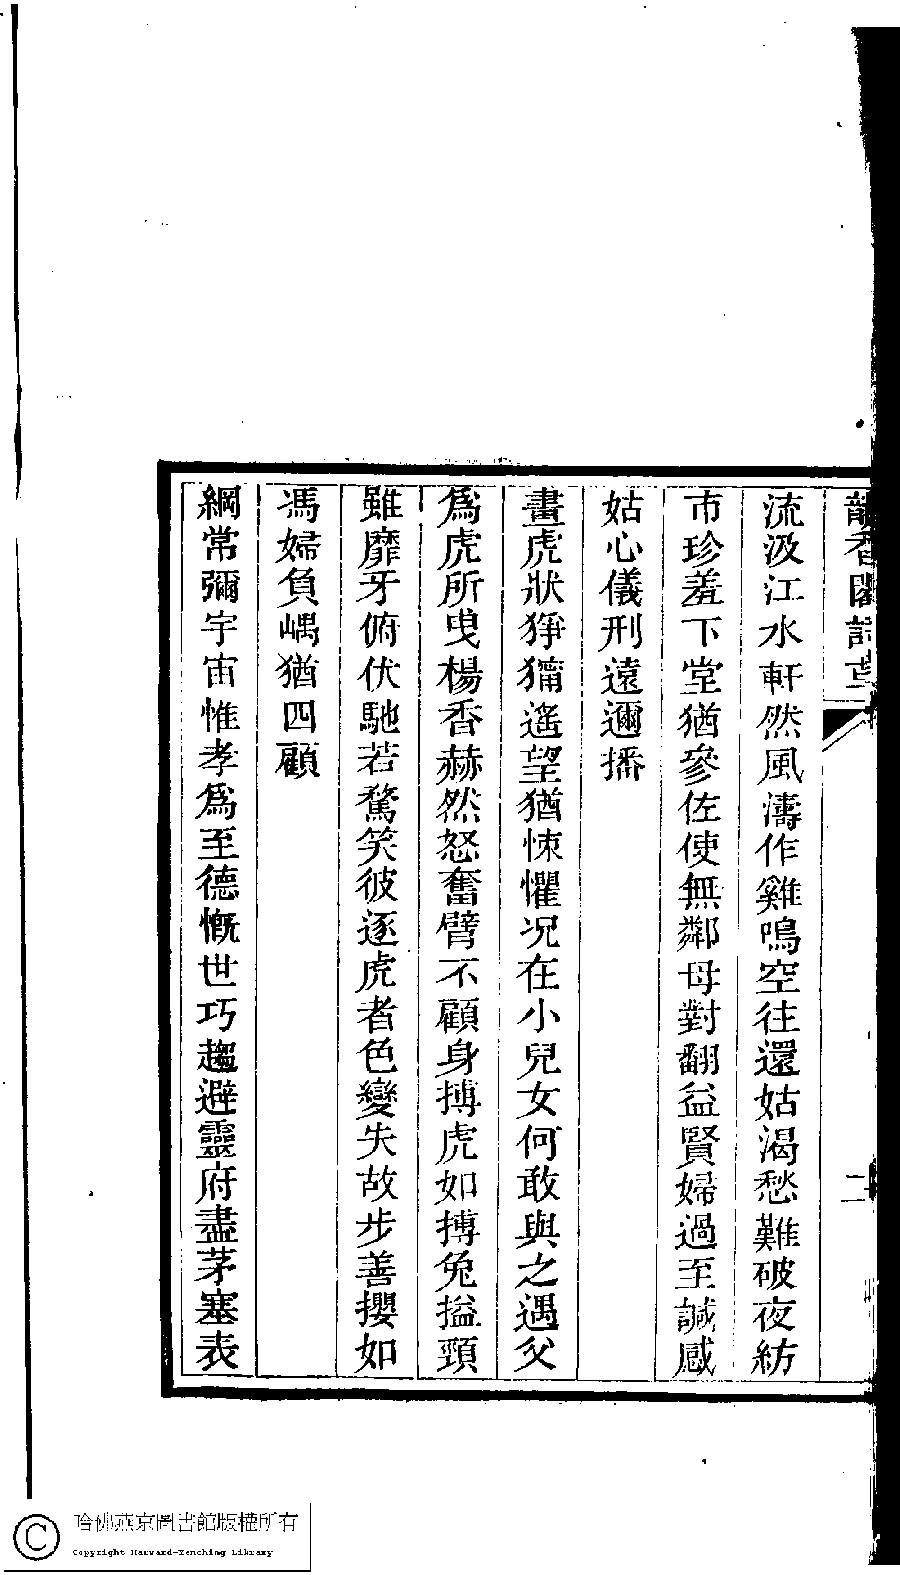 香閣詩草
二
流汲江水軒然風濤作雞鳴空往還姑渴愁難破夜紡
市珍羞下堂猶參佐使無鄰母對翻益賢婦過至諴感
姑心儀刑遠邇播
畫虎狀猙獰遙望猶悚懼況在小兒女何敢與之遇父
為虎所曳楊香赫然怒奮臂不顧身搏虎如搏兔搤頸
雖靡牙俯伏馳若騖笑彼逐虎者色變失故步善攖如
馮婦負嵎猶四顧
綱常彌宇宙惟孝為至德慨世巧趨避靈府盡茅塞表
哈佛燕京圖書館版權所有
Copyright Harvard-Yenching Library